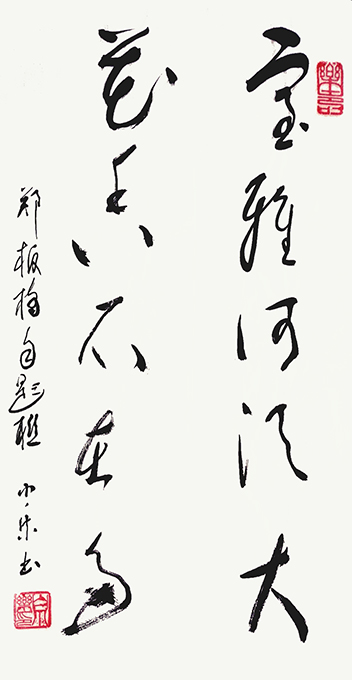 室雅何须大
花香不在多
郑板桥自题联 小乐书